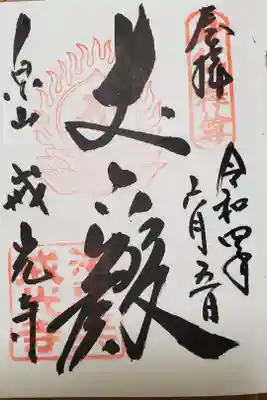 奉拝
令和四年
六月五日
丈六殿
泉山 戒光寺